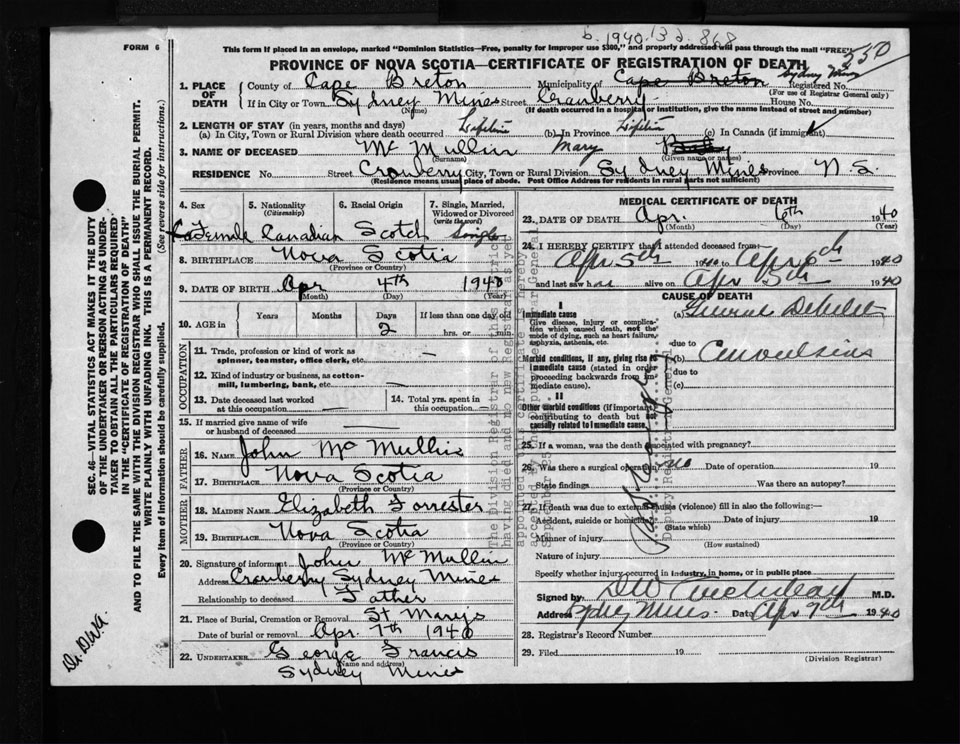 b. 1940. 13 2. 868
FORM 6
This form if placed in an envelope, marked "Dominion Statistics—Free, penalty for improper use $300," and properly addressed will pass through the mail "FREE"
250
PROVINCE OF NOVA SCOTIA—CERTIFICATE OF REGISTRATION OF DEATH
1. PLACE OF DEATH County of Cape Breton Municipality of Cape Breton Sydney Mines Registered No.
(For use of Registrar General only)
If in City or Town Sydney Mines Street Cranberry House No.
(Name) (If death occurred in a hospital or institution, give the name instead of street and number)
2. LENGTH OF STAY (in years, months and days)
(a) In City, Town or Rural Division where death occurred Lifetime (b) In Province Lifetime (c) In Canada (if immigrant)
3. NAME OF DECEASED Mc Mullin Mary Baby
(Surname) (Given name or names)
RESIDENCE No. Street Cranberry City, Town or Rural Division Sydney Mines Province N.S.
(Residence means usual place of abode. Post Office Address for residents in rural parts not sufficient)
4. Sex 5. Nationality (Citizenship) 6. Racial Origin 7. Single, Married, Widowed or Divorced (write the word)
Female Canadian Scotch Single
8. BIRTHPLACE Nova Scotia
(Province or Country)
9. DATE OF BIRTH Apr 4th 1940
(Month) (Day) (Year)
10. AGE in Years Months Days If less than one day old
2 hrs. or min.
OCCUPATION
11. Trade, profession or kind of work as spinner, teamster, office clerk, etc. —
12. Kind of industry or business, as cotton-mill, lumbering, bank, etc. —
13. Date deceased last worked at this occupation — 14. Total yrs. spent in this occupation —
15. If married give name of wife or husband of deceased
FATHER
16. Name John Mc Mullin
17. BIRTHPLACE Nova Scotia
(Province or Country)
MOTHER
18. MAIDEN NAME Elizabeth Forrester
19. BIRTHPLACE Nova Scotia
(Province or Country)
20. Signature of informant John Mc Mullin
Address Cranberry Sydney Mines
Relationship to deceased Father
21. Place of Burial, Cremation or Removal St Mary's
Date of burial or removal Apr. 7th 1940
22. UNDERTAKER George Francis
(Name and address)
Sydney Mines
MEDICAL CERTIFICATE OF DEATH
23. DATE OF DEATH Apr. 6th 1940
(Month) (Day)
24. I HEREBY CERTIFY that I attended deceased from
Apr 5th 1940 to Apr 6th 1940
and last saw h alive on Apr 5th 1940
CAUSE OF DEATH
I
Immediate cause (a) Debility
Give disease, injury or complication which caused death, not the mode of dying, such as heart failure, asphyxia, asthenia, etc.
due to
Morbid conditions, if any, giving rise to immediate cause (stated in order proceeding backwards from immediate cause). (b) Convulsions
due to
(c)
II
Other morbid conditions (if important) contributing to death but not causally related to immediate cause.
25. If a woman, was the death associated with pregnancy?
26. Was there a surgical operation? no Date of operation 19
State findings Was there an autopsy?
27. If death was due to external cause (violence) fill in also the following:—
Accident, suicide or homicide? Date of injury 19
(State which)
Manner of injury
(How sustained)
Nature of injury
Specify whether injury occurred in industry, in home, or in public place
Signed by M.D.
Address Sydney Mines Date Apr 9th 1940
28. Registrar's Record Number
29. Filed 19
(Division Registrar)
SEC. 46—VITAL STATISTICS ACT MAKES IT THE DUTY OF THE UNDERTAKER OR PERSON ACTING AS UNDERTAKER TO OBTAIN ALL THE PARTICULARS REQUIRED IN THE "CERTIFICATE OF REGISTRATION OF DEATH"
AND TO FILE THE SAME WITH THE DIVISION REGISTRAR WHO SHALL ISSUE THE BURIAL PERMIT.
WRITE PLAINLY WITH UNFADING INK. THIS IS A PERMANENT RECORD.
Every item of Information should be carefully supplied. (See reverse side for instructions.)